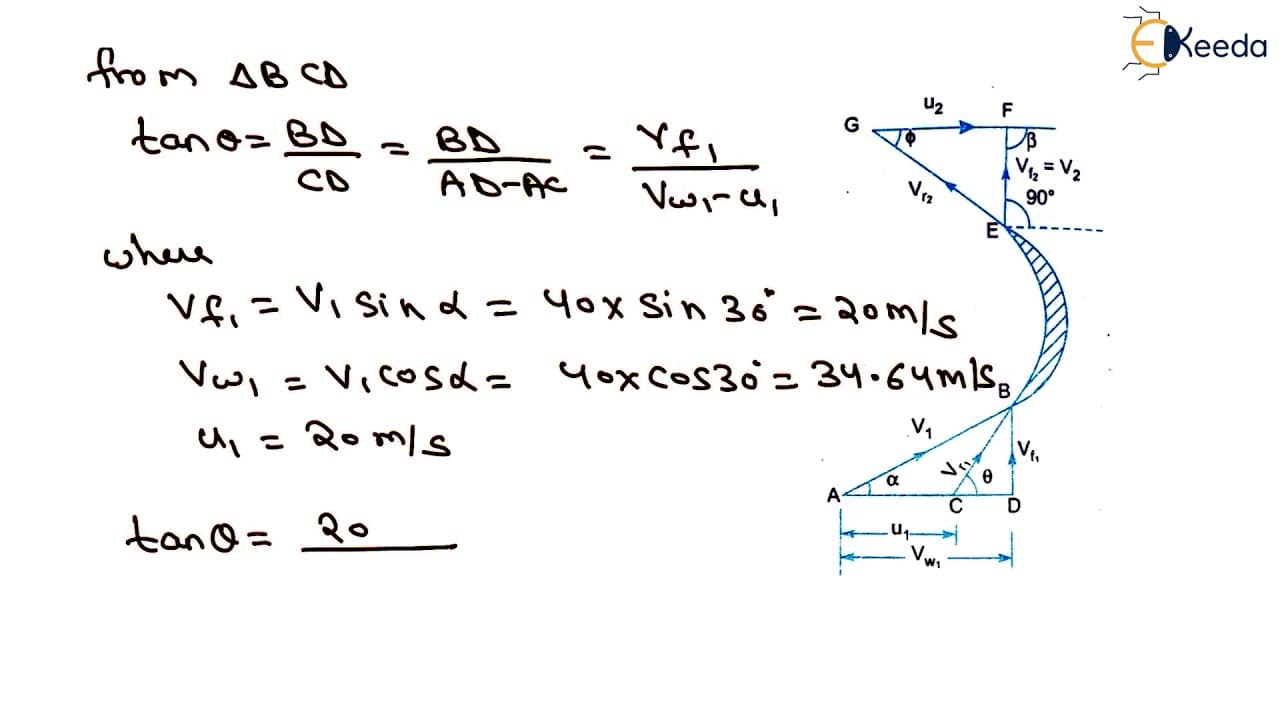 EKeeda
from ΔBCD
tanθ = BD/CD = BD/AD-AC = Vf1/Vw1-u1
where
Vf1 = V1 sin α = 40 x sin 30° = 20 m/s
Vw1 = V1 cos α = 40 x cos 30° = 34.64 m/s
u1 = 20 m/s
tanθ = 20
u2
G
F
ϕ
β
Vf2 = V2
Vr2
90°
E
B
V1
Vf1
Vr1
α
θ
A
C
D
u1
Vw1